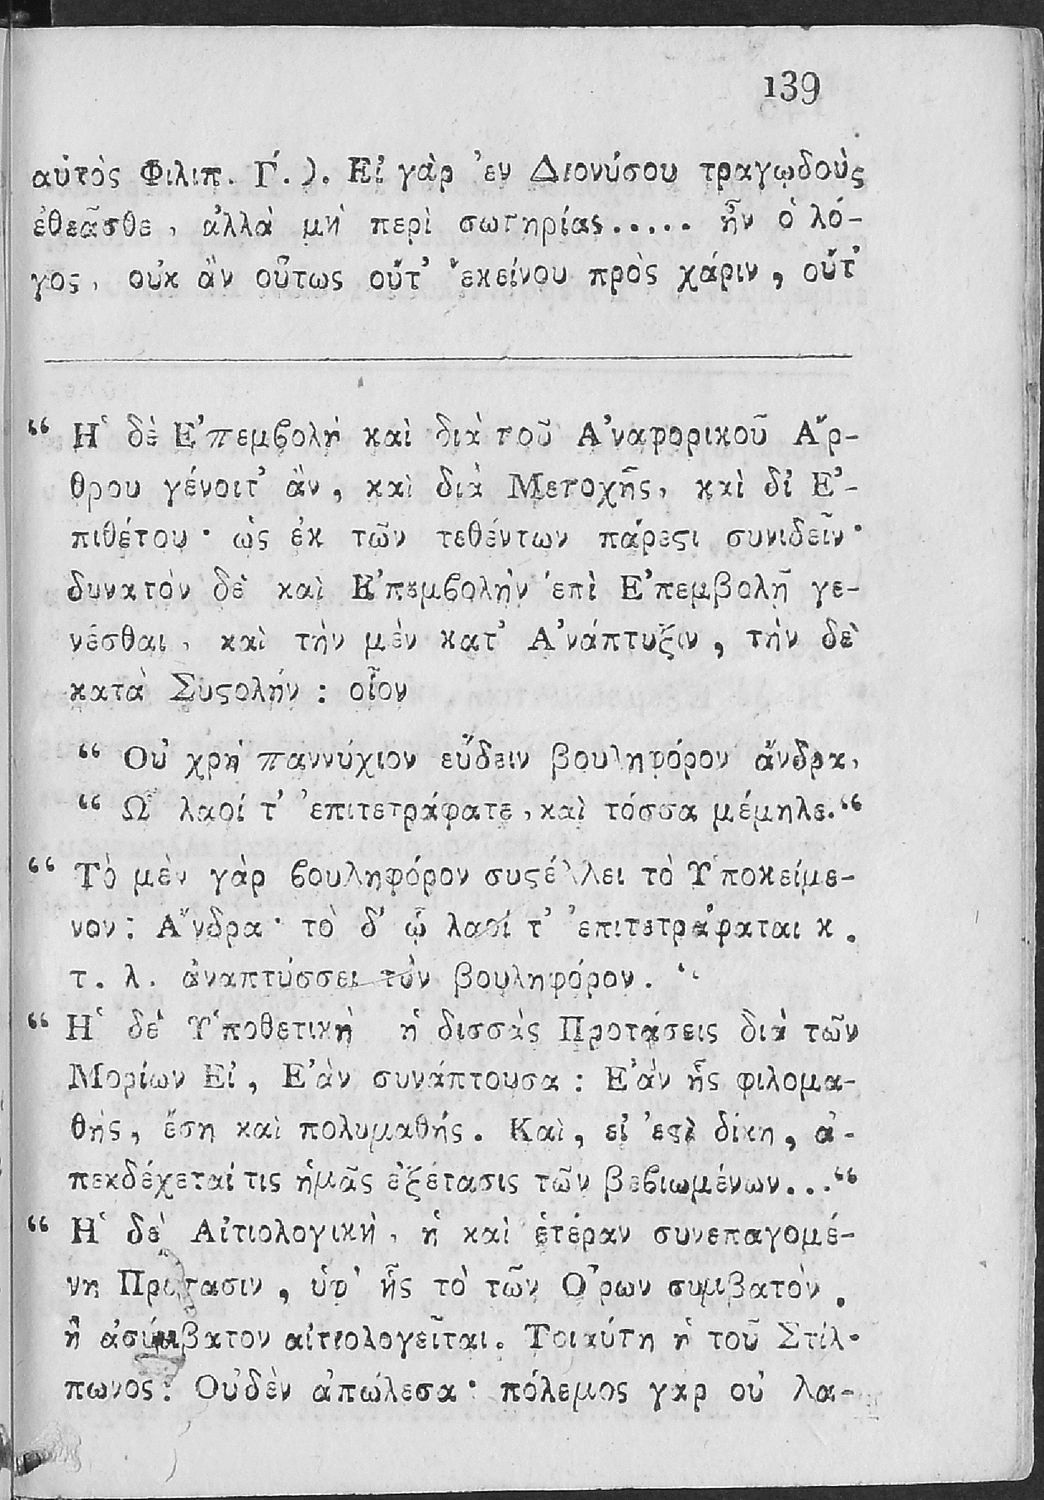 139
αὐτὸς Φιλιπ. Γ΄.). Εἰ γὰρ ἐν Διονύσου τραγῳδοὺς
ἐθεᾶσθε, ἀλλὰ μὴ περὶ σωτηρίας..... ἦν ὁ λό-
γος, οὐκ ἂν οὕτως οὔτ' ἐκείνου πρὸς χάριν, οὔτ'
“ Ἡ δὲ Ἐπεμβολὴ καὶ διὰ τοῦ Ἀναφορικοῦ Ἄρ-
θρου γένοιτ' ἂν, καὶ διὰ Μετοχῆς, καὶ δι Ἐ-
πιθέτου· ὡς ἐκ τῶν τεθέντων πάρεϛι συνιδεῖν·
δυνατὸν δὲ καὶ Ἐπεμβολὴν ἐπὶ Ἐπεμβολῇ γε-
νέσθαι, καὶ τὴν μὲν κατ' Ἀνάπτυξιν, τὴν δὲ
κατὰ Συϛολήν: οἷον
“ Οὐ χρὴ παννύχιον εὕδειν βουληφόρον ἄνδρα,
“ Ὧ λαοί τ' ἐπιτετράφατε, καὶ τόσσα μέμηλε.“
“ Τὸ μὲν γὰρ βουληφόρον συϛέλλει τὸ Ὑποκείμε-
νον: Ἄνδρα· τὸ δ' ᾧ λαοί τ' ἐπιτετράφαται κ.
τ. λ. ἀναπτύσσει τὸν βουληφόρον. “
“ Ἡ δὲ Ὑποθετικὴ ἡ δισσὰς Προτάσεις διὰ τῶν
Μορίων Εἰ, Ἐὰν συνάπτουσα: Ἐὰν ᾖς φιλομα-
θὴς, ἔση καὶ πολυμαθής. Καὶ, εἰ ἐϛὶ δίκη, ἀ-
πεκδέχεταί τις ἡμᾶς ἐξέτασις τῶν βεβιωμένων...“
“ Ἡ δὲ Αἰτιολογικὴ, ἡ καὶ ἑτέραν συνεπαγομέ-
νη Πρότασιν, ὑφ' ἧς τὸ τῶν Ὅρων συμβατὸν,
ἢ ἀσύμβατον αἰτιολογεῖται. Τοιαύτη ἡ τοῦ Στίλ-
πωνος: Οὐδὲν ἀπώλεσα· πόλεμος γὰρ οὐ λα-